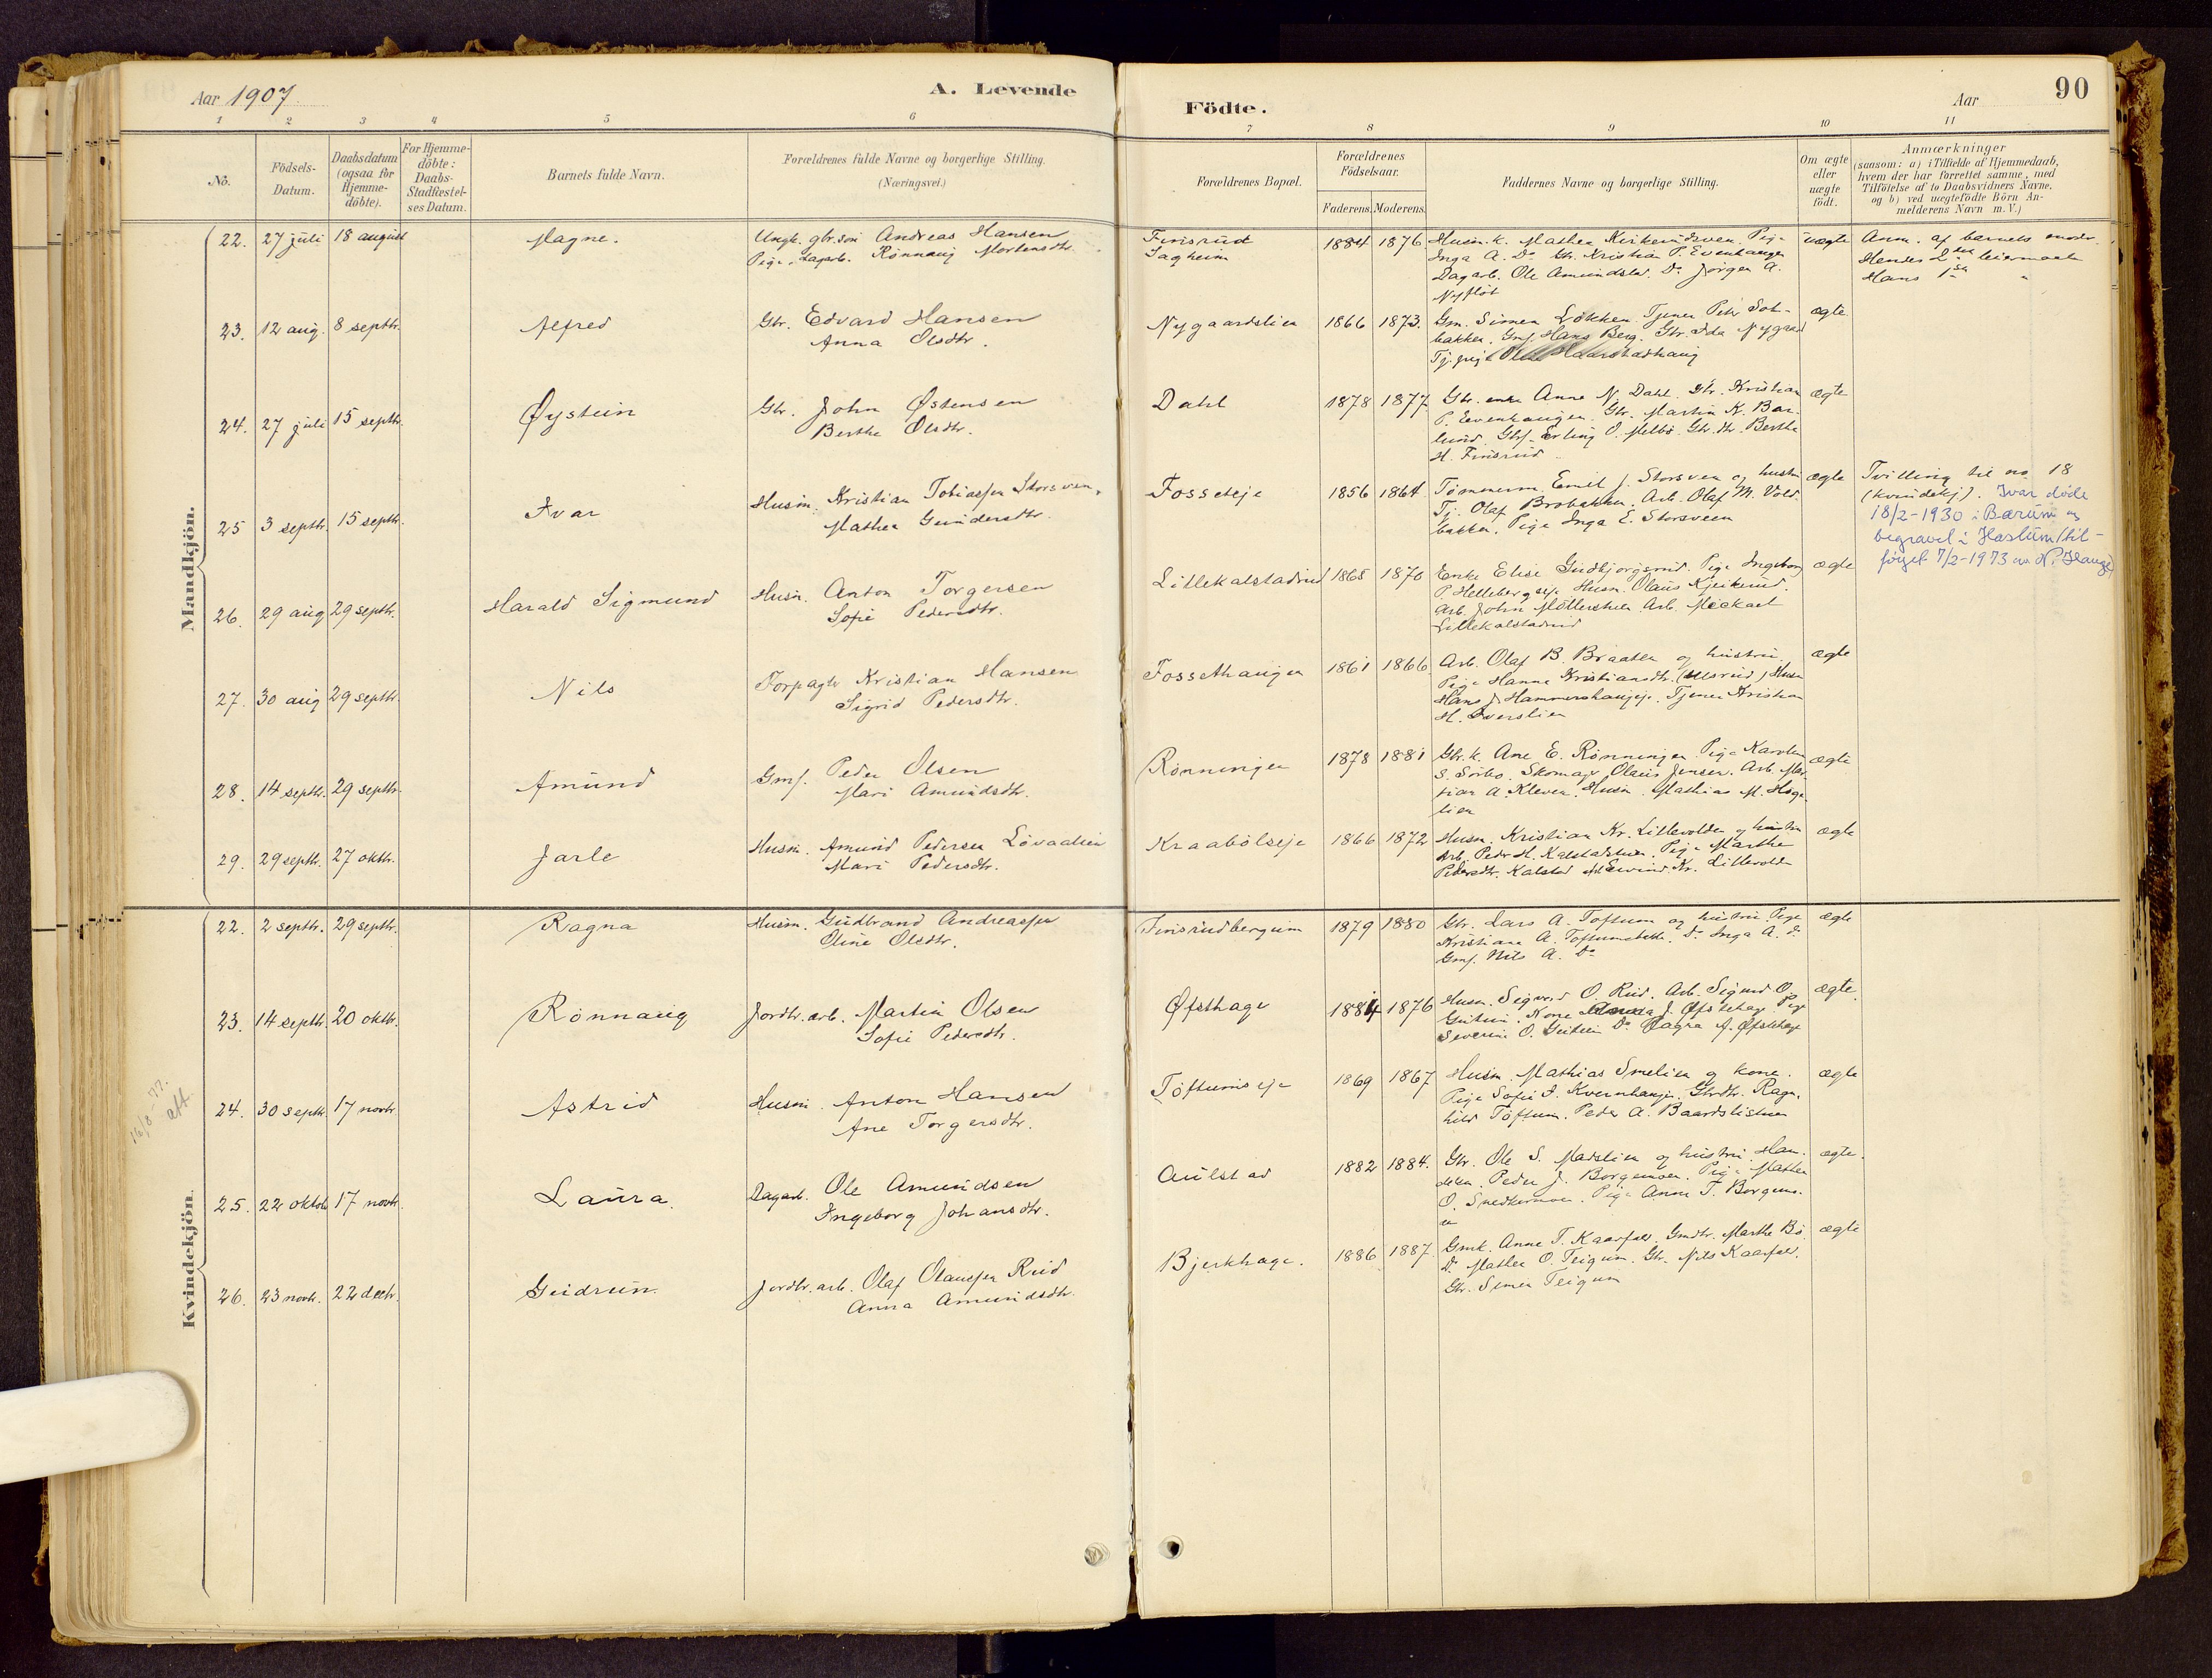 Aar 1907.
A. Levende
Födte.
Aar
90
1 2 3 4 5 6 7 8 9 10 11
No.
Födsels-Datum.
Daabsdatum (ogsaa for Hjemme-döbte).
For Hjemme-döbte: Daabs-Stadfæstel-ses Datum.
Barnets fulde Navn.
Forældrenes fulde Navne og borgerlige Stilling.
(Næringsvei.)
Forældrenes Bopæl.
Forældrenes Födselsaar.
Faderens. Moderens.
Faddernes Navne og borgerlige Stilling.
Om ægte eller uægte födt.
Anmærkninger
(saasom: a) i Tilfælde af Hjemmedaab,
hvem der har forrettet samme, med
Tilföielse af to Daabsvidners Navne,
og b) ved uægtefödte Börn An-
melderens Navn m. V.)
Mandkjön.
22. 27 juli 18 august Magne. Ungk. gbr. sön Andreas Hansen
Pige, Dagarb. Rönnaug Mortensdtr.
Finsrud
Sagheim
1884 1876
Husm.k. Mathea Kirkerudsveen. Pige
Inga A. Do Gbr. Kristian P. Evenhaugen
Dagarb. Ole Amundslad. Do Jörgen A.
Nyflöt
uægte
Anm. af barnets moder.
Hendes 2det leiermaal
Hans 1ste "
23. 12 aug. 8 septbr. Alfred Gbr. Edvard Hansen
Anna Olsdtr.
Nygaardslien 1866 1873.
Gm. Simen Løkken. Tjener Peter Sol-
bakken. Gmf. Hans Berg. Gbr. Ida Nygaard
Tj. pige Oline Haarstadhaug
ægte
24. 27 juli 15 septbr. Øystein Gbr. John Østensen
Berthe Olsdtr.
Dahl 1878 1877
Gbr. enke Anne N. Dahl. Gbr. Kristian
P. Evenhaugen. Gbr. Martin K. Bar-
lund. Gbf. Erling O. Melbö. Gbr. dtr. Berthe
H. Finsrud
ægte
25 3 septbr. 15 septbr. Ivar Husm. Kristian Tobiassen Storsveen,
Mathea Gundersdtr.
Fosseteje 1856 1864.
Tömmerm. Emil J. Storsveen og hustru
Tj. Olaf Brobakken. Arb. Olaf M. Vold-
bakken. Pige Inga E. Storsveen
ægte
Tvilling til no. 18
(kvindekj). Ivar døde
18/2-1930 i Bærum og
begravet i Haslum (til-
føyet 7/2-1973 av N. Hauge)
26. 29 aug 29 septbr. Harald Sigmund Husm. Anton Torgersen
Sofie Pedersdtr.
Lillekalstadrud 1865 1870
Enke Elise Gudbjorgsrud. Pige Ingeborg
P. Hellebergseje. Husm. Olaus Kjeikerud.
Arb. John Möllerstuen. Arb. Mickael
Lillekalstadrud
ægte
27. 30 aug 29 septbr. Nils Forpagter Kristian Hansen
Sigrid Pedersdtr.
Fossethaugen 1861 1866
Arb. Olaf B. Braaten og hustru.
Pige Hanna Kristiansdtr. (Ulsrud) Husm
Hans J. Hammershaugeje. Tjener Kristian
H. Øverslien
ægte
28. 14 septbr. 29 septbr. Amund Gmf. Peder Olsen
Mari Amundsdtr.
Rönningen 1878 1881
Gbr.k. Ane E. Rönningen. Pige Karoline
S. Sörbo. Skomager Olaus Jensen. Arb. Mar-
tian A. Kleven. Husm. Mathias M. Hage-
lien
ægte
29. 29 septbr. 27 oktbr. Jarle Husm. Amund Pedersen Lövaalien
Mari Pedersdtr.
Kraabölseje 1866 1872
Husm. Kristian Kr. Lillevolden og hustru
Arb. Peder H. Kalstadstuen. Pige Marthe
Pedersdtr. Kalstad Eivind Kr. Lillevolden
ægte
Kvindekjön.
22. 2 septbr. 29 septbr. Ragna Husm. Gudbrand Andreassen
Oline Olsdtr.
Finsrudbergum 1879 1880
Gbr. Lars A. Toftum og hustru. Pige
Kristiane A. Toftumsbakk. Do Inga A. do
Gmf. Nils A. Do
ægte
23. 14 septbr. 20 oktbr. Rönnaug Jordbr. arb. Martin Olsen
Sofie Pedersdtr.
Øfsthage 1884 1876
Husm. Sigvard O. Rud. Arb. Sigurd O.
Guthus. Kone Amanda J. Øfsthage. Pige
Severine O. Do Ragna J. Øfsthage
ægte.
16/8-77. att.
24. 30 septbr. 17 novbr Astrid Husm. Anton Hansen
Ane Torgersdtr.
Toftumseje 1869 1867
Husm. Mathias Smelien og kone.
Pige Sofie J. Kvernhaugen. Gbrdtr. Ragn-
hild Toftum. Peder A. Baardslistuen
ægte
25. 22 oktob 17 novbr Laura. Dagarb. Ole Amundsen
Ingeborg Johansdtr.
Aulstad 1882 1884.
Gbr. Ole S. Madslien og hustru. Han-
delsm. Peder J. Borgemoen. Pige Mathea
O. Snedkermoen. Pige Anne T. Borgemo-
en
ægte.
26. 23 novbr. 22 decbr. Gudrun. Jordbr. arb. Olaf Olaussen Rud
Anna Amundsdtr.
Bjerkhage. 1886 1887.
Gmk. Anne T. Kaarfald. Gmdtr. Marthe Bö.
Do Mathea O. Teigum. Gbr. Nils Kaarfald.
Gbr. Simen Teigum
ægte